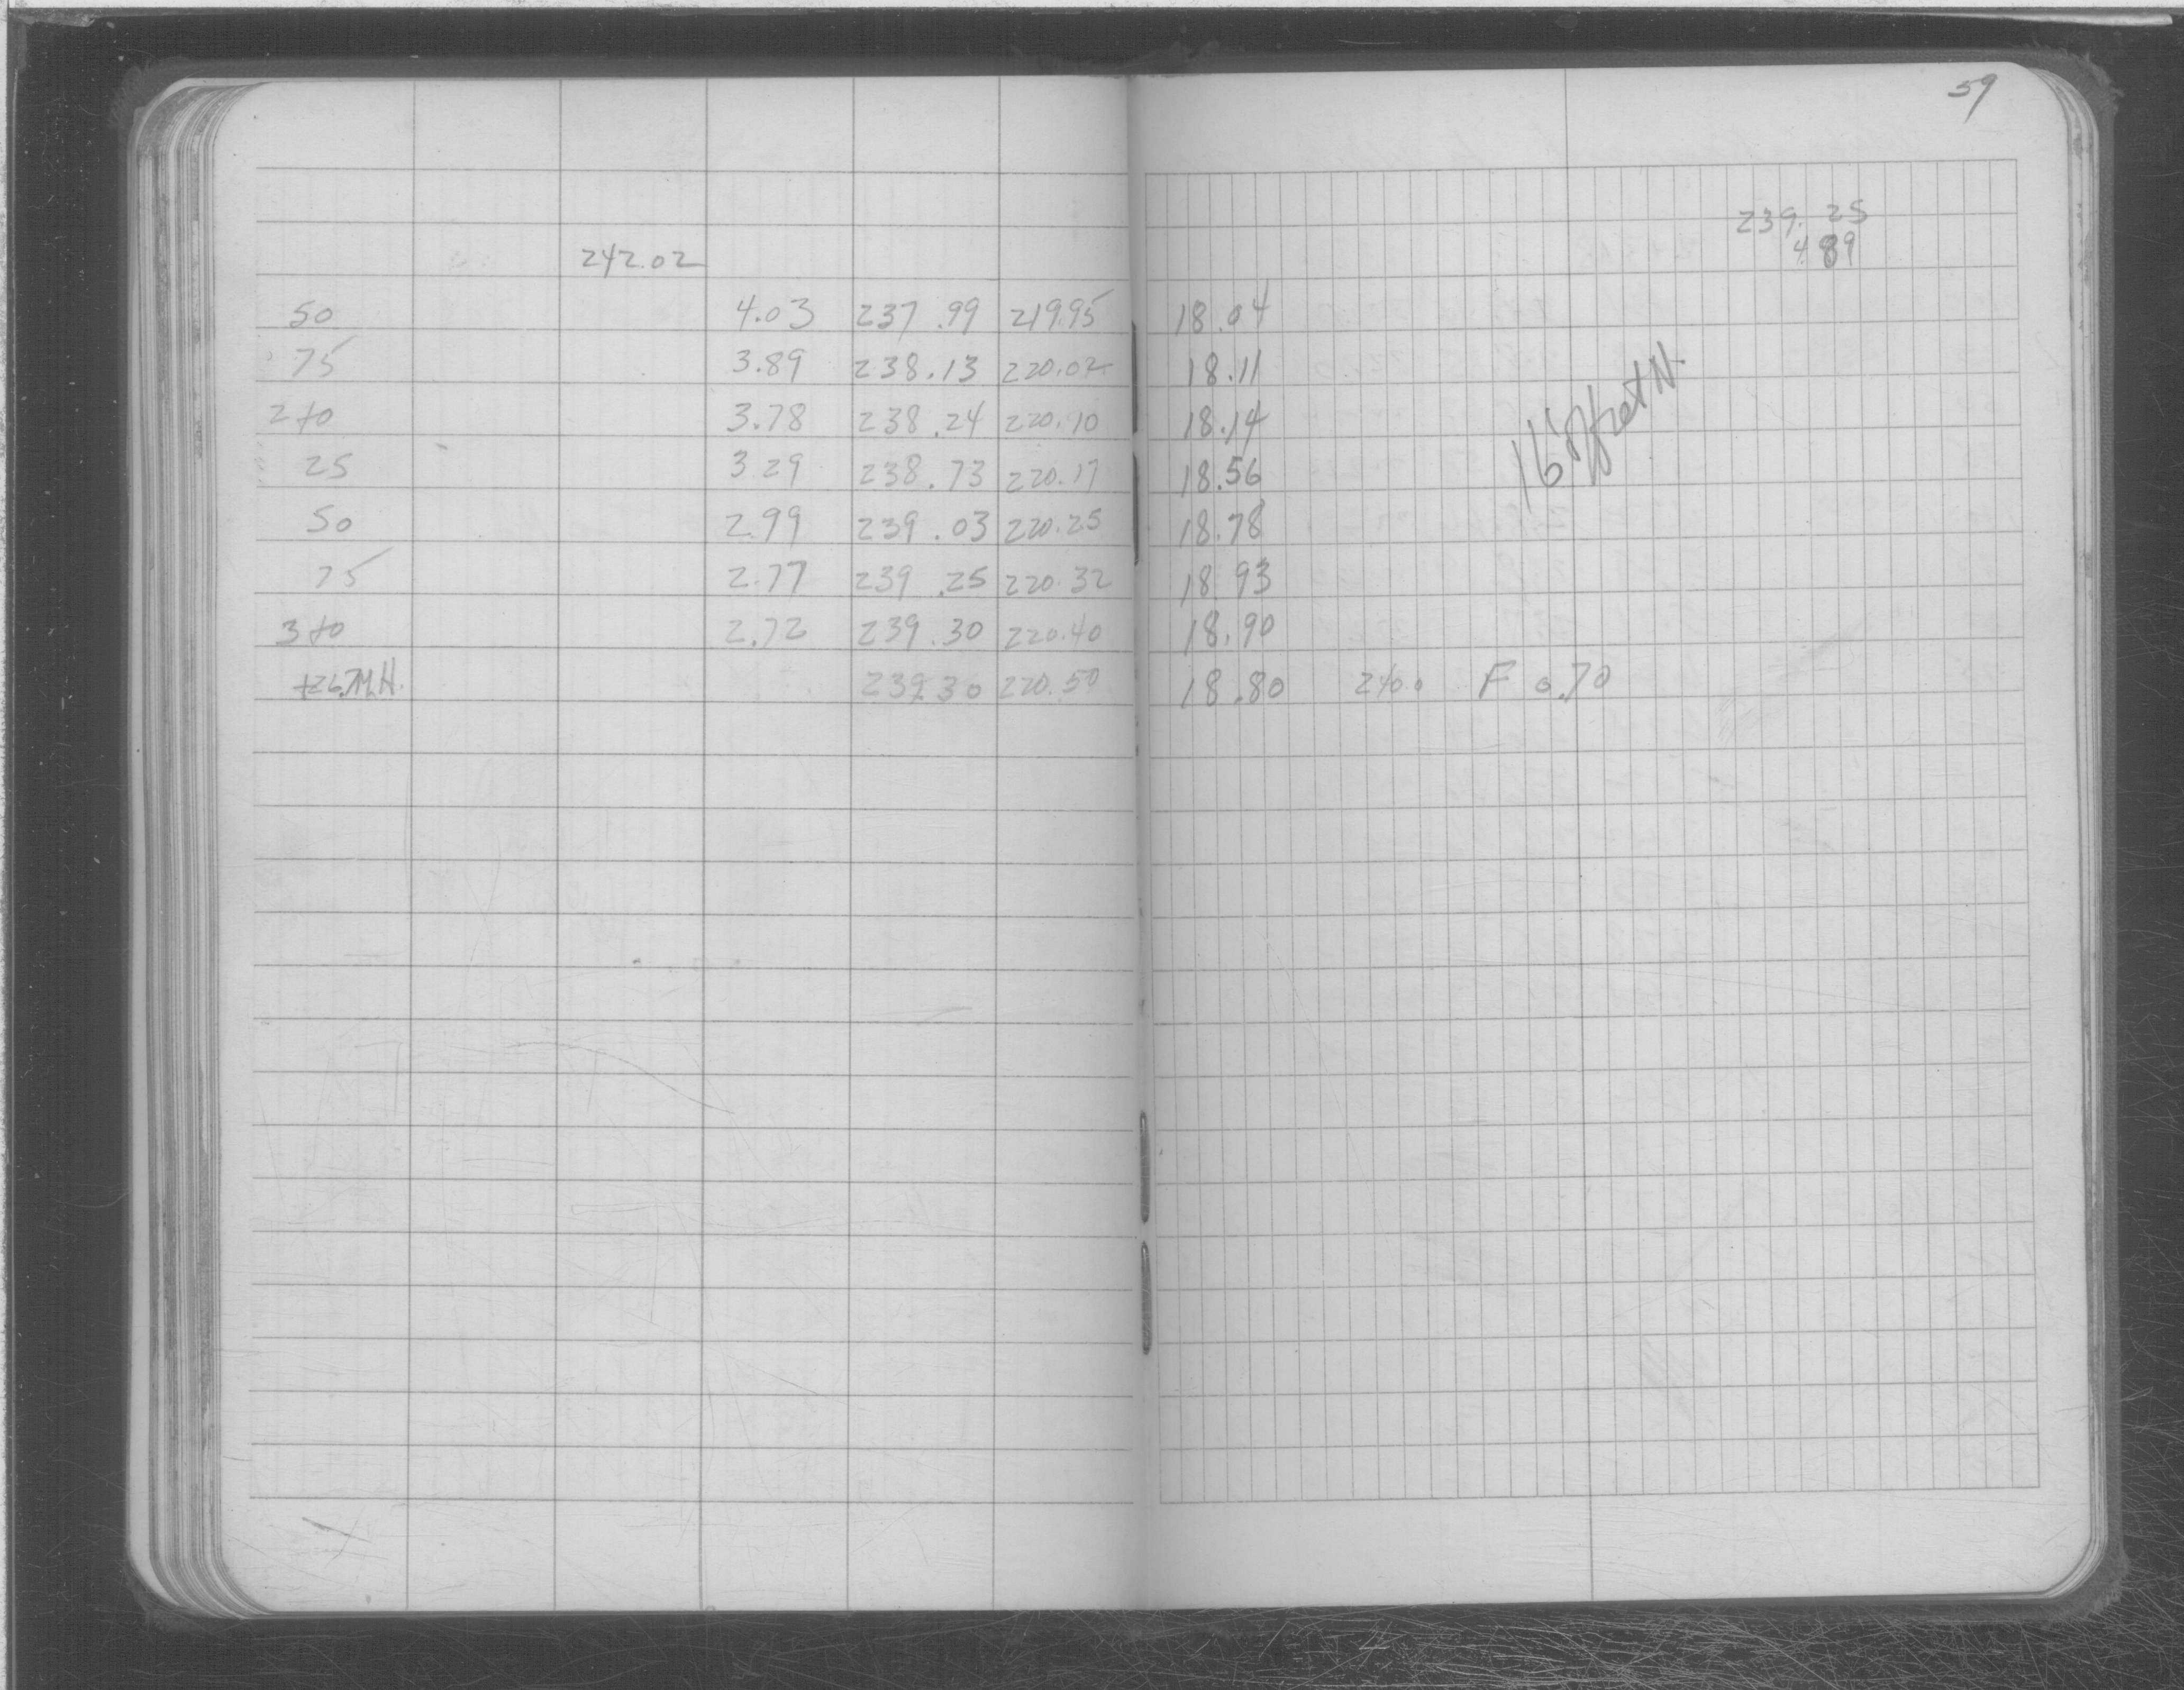 59
239.25
4.89
242.02
50 4.03 237.99 219.95 18.04
75 3.89 238.13 220.02 18.11
2+0 3.78 238.24 220.10 18.14
25 3.29 238.73 220.17 18.56
50 2.99 239.03 220.25 18.78
75 2.77 239.25 220.32 18.93
3+0 2.72 239.30 220.40 18.90
+26.7 M.H. 239.30 220.50 18.80 240.0 F 0.70
16' offset N.